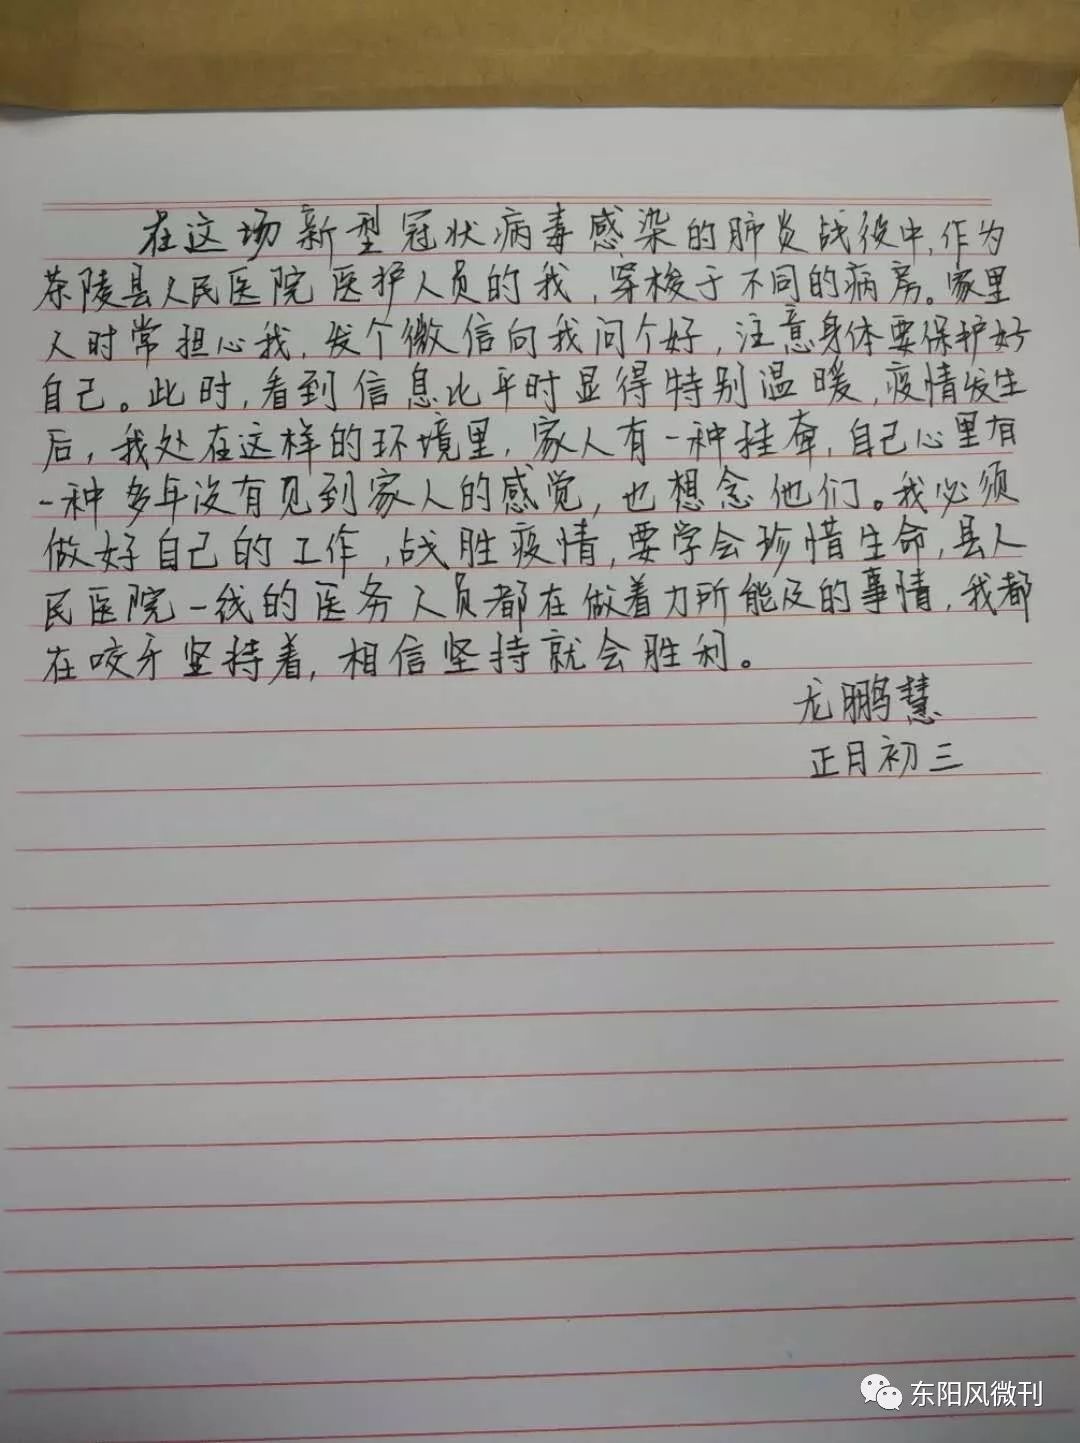 在这场新型冠状病毒感染的肺炎战役中,作为
茶陵县人民医院医护人员的我,穿梭于不同的病房。家里
人时常担心我,发个微信向我问个好,注意身体要保护好
自己。此时,看到信息比平时显得特别温暖,疫情发生
后,我处在这样的环境里,家人有一种挂牵,自己心里有
一种多年没有见到家人的感觉,也想念他们。我必须
做好自己的工作,战胜疫情,要学会珍惜生命,县人
民医院一线的医务人员都在做着力所能及的事情,我都
在咬牙坚持着,相信坚持就会胜利。
龙鹏慧
正月初三
东阳风微刊